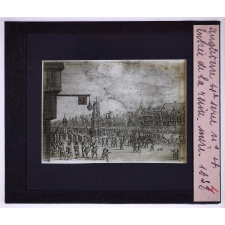 Angleterre 4e série no 4
Entrée de la reine mère. 1638